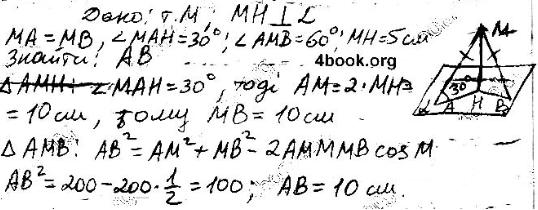 Дано: т.М; MH⊥α
MA=MB, ∠MAH=30°; ∠AMB=60°; MH=5см
Знайти: AB
4book.org
△AMH: ∠MAH=30°, тоді AM=2·MH=
=10см, тому MB=10см
△AMB: AB²=AM²+MB²-2AMMMB cosM
AB²=200-200·1/2=100; AB=10 см.
M
30°
α A H B